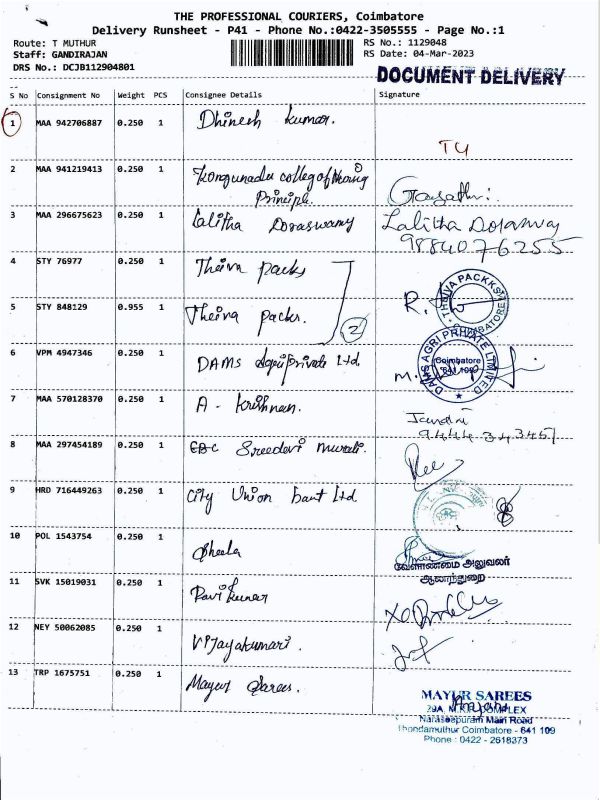 THE PROFESSIONAL COURIERS, Coimbatore
Delivery Runsheet - P41 - Phone No.:0422-3505555 - Page No.:1
Route: T MUTHUR RS No.: 1129048
Staff: GANDIRAJAN RS Date: 04-Mar-2023
DRS No.: DCJB112904801
DOCUMENT DELIVERY
S No Consignment No Weight PCS Consignee Details Signature
1 MAA 942706887 0.250 1 Dhinesh Kumar.
2 MAA 941219413 0.250 1 Kongunadu college of
Principle.
3 MAA 296675623 0.250 1 Lalitha Doraswamy Lalitha
9884076255
4 STY 76977 0.250 1 Theiva packs
THEIVA PACKKS
COIMBATORE
5 STY 848129 0.955 1 Theiva packs. 2
6 VPM 4947346 0.250 1 DAMS Agri private Ltd.
DAMS AGRI PRIVATE LIMITED
Coimbatore
641 109
7 MAA 570128370 0.250 1 A - Krishnan.
8 MAA 297454189 0.250 1 Sreedevi Murali.
9 HRD 716449263 0.250 1 City Union Ltd
10 POL 1543754 0.250 1 Sheela
வேளாண்மை அலுவலர்
ஆலாந்துறை
11 SVK 15019031 0.250 1 Ravi Kumar
12 NEY 50062085 0.250 1 Vijayakumari.
13 TRP 1675751 0.250 1 Mayur Sarees.
MAYUR SAREES
COMPLEX
Naraseepuram Main Road
Thondamuthur Coimbatore - 641 109
Phone : 0422 - 2618373